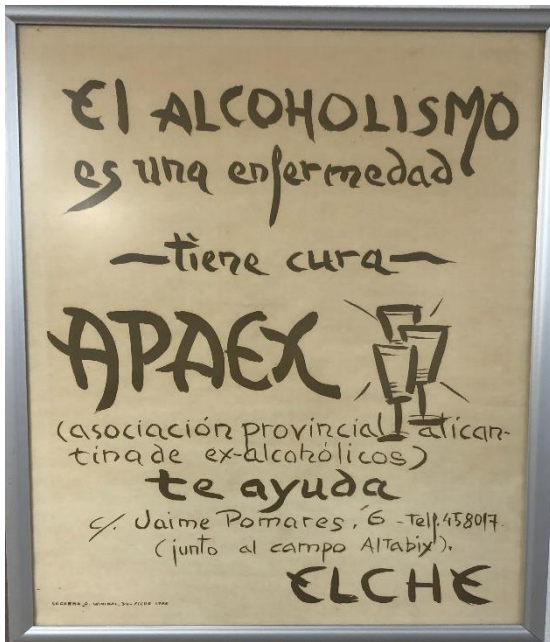 El ALCOHOLISMO
es una enfermedad
—tiene cura—
APAEX
(asociación provincial alican-
tina de ex-alcohólicos)
te ayuda
c/. Jaime Pomares, 6 - Telf. 458017.
(junto al campo Altabix).
ELCHE